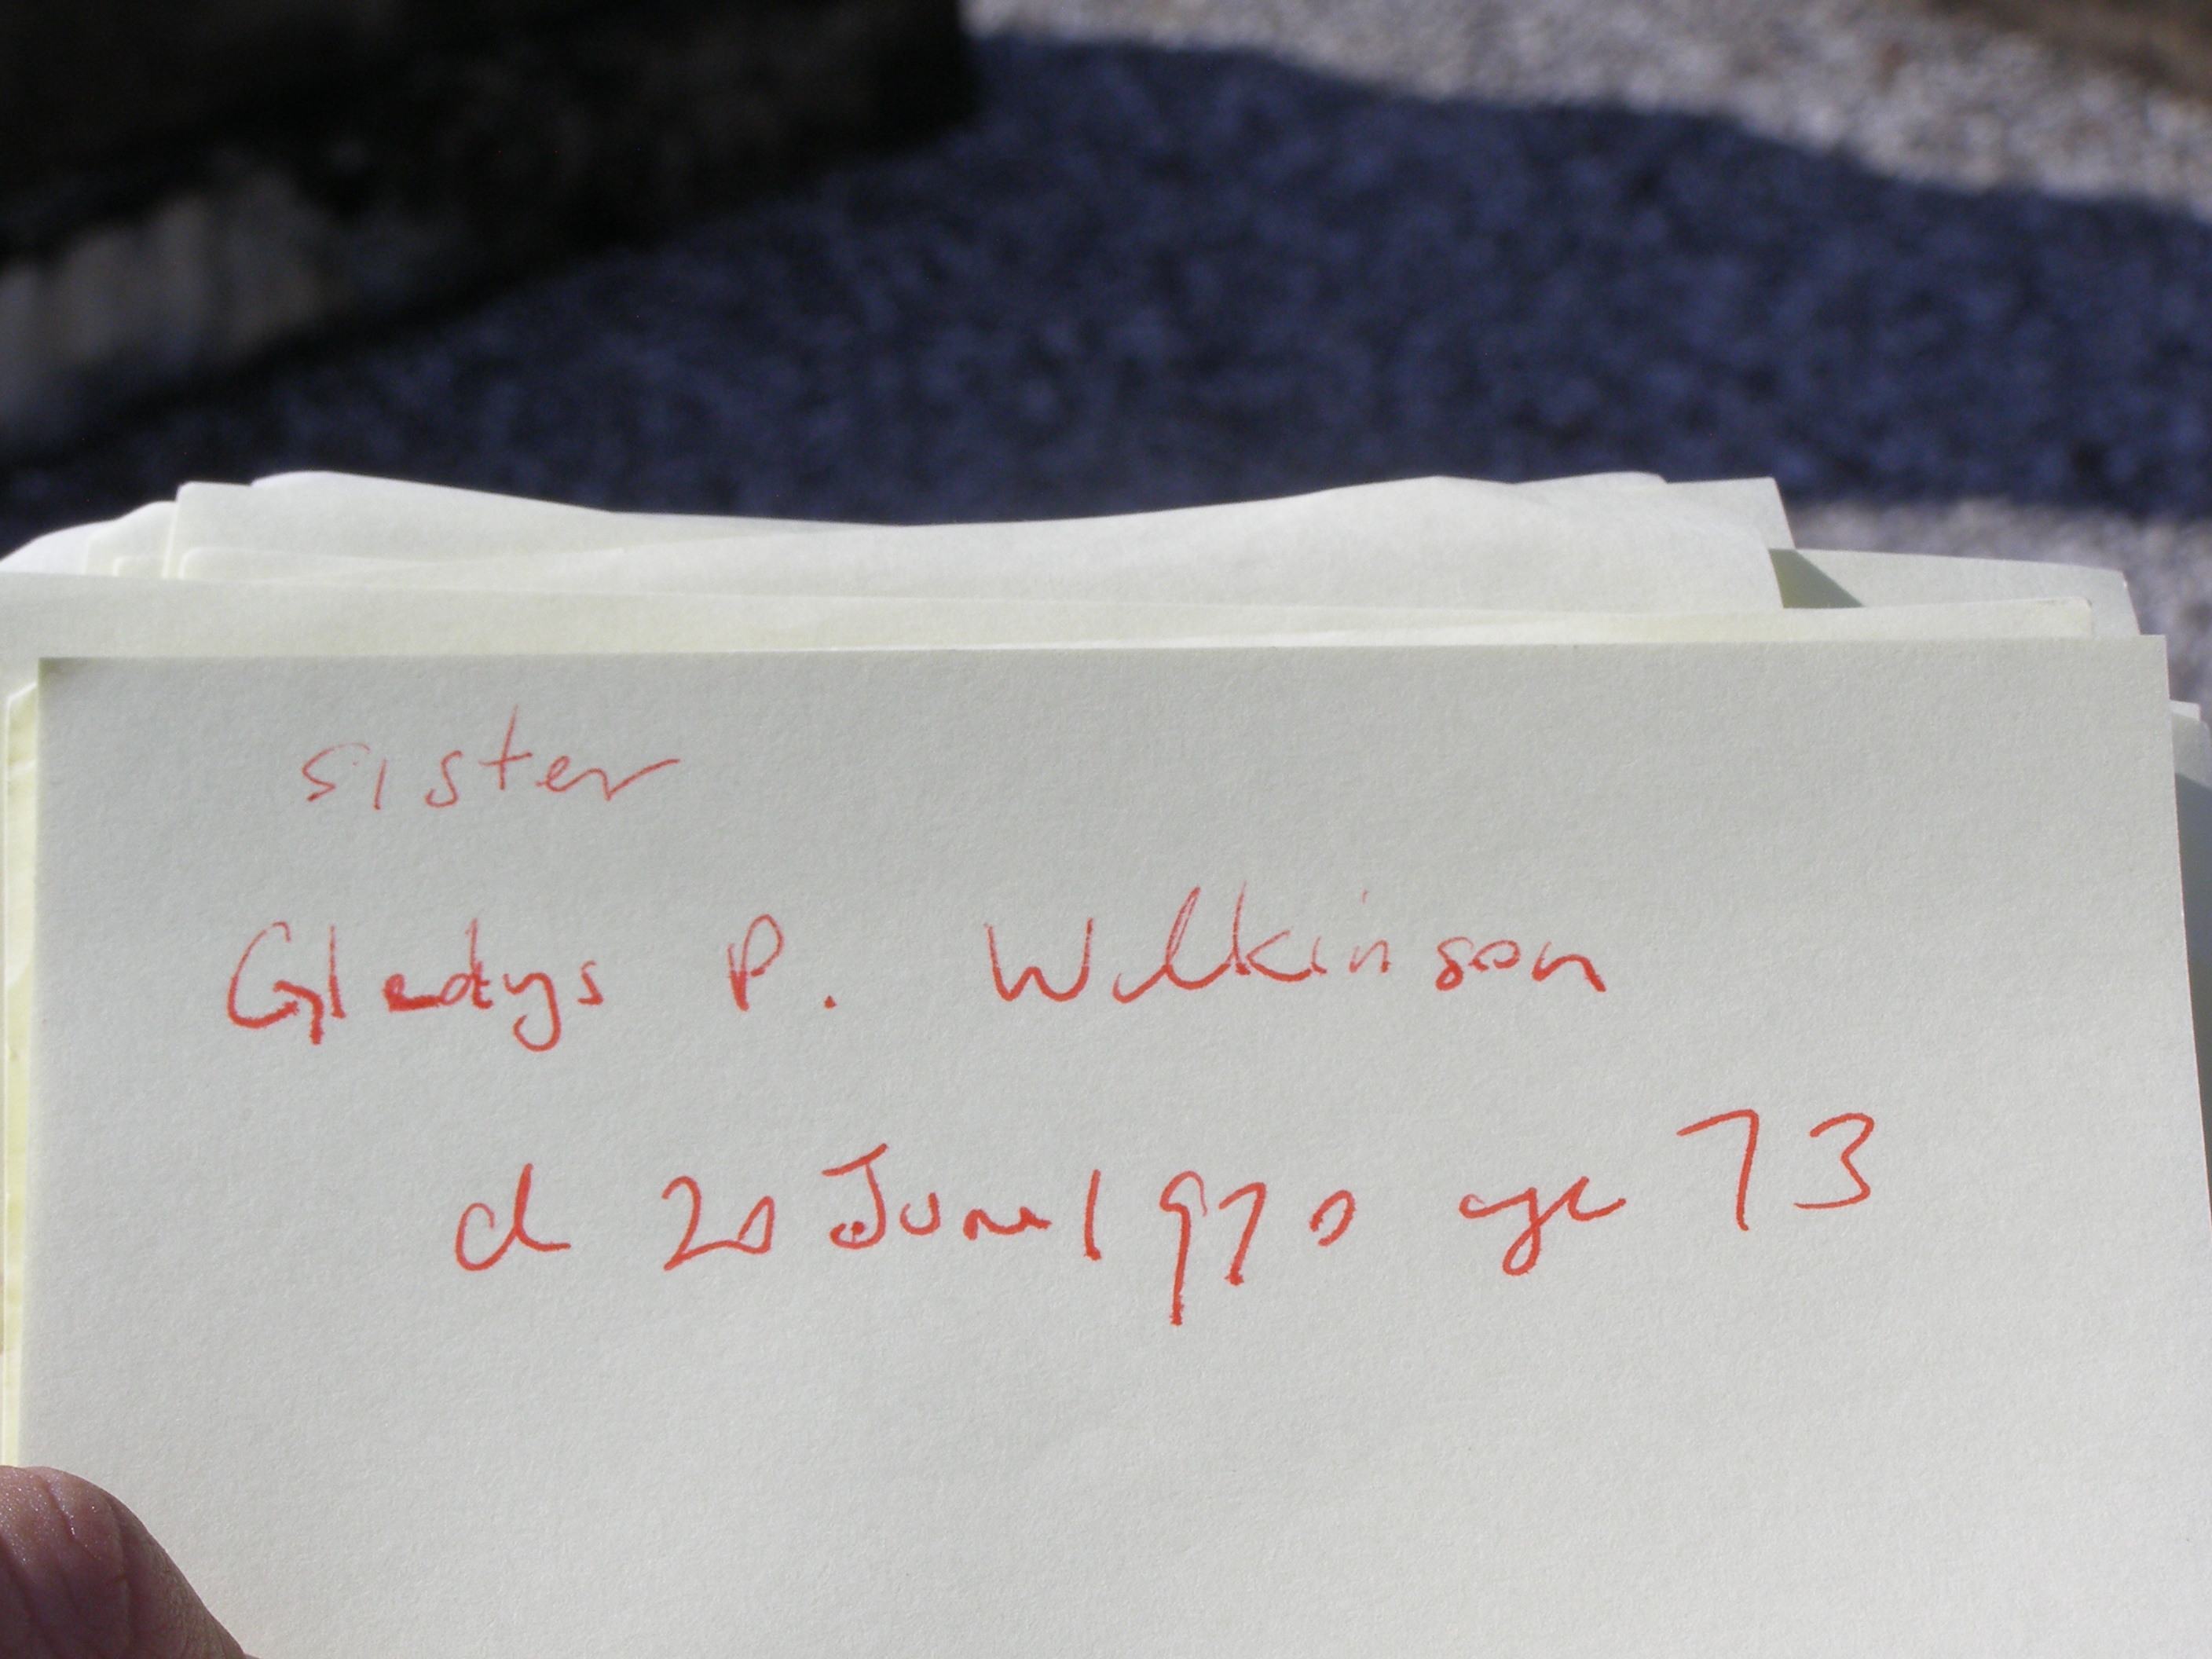 sister
Gladys P. Wilkinson
d 20 June 1970 age 73